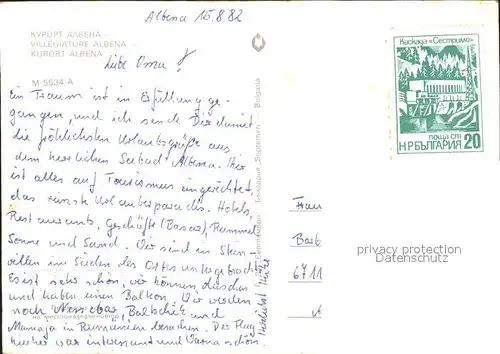 Albena 15.8.82
КУРОРТ АЛБЕНА
VILLÉGIATURE ALBENA
KURORT ALBENA
Liebe Oma!
M-5634-A
Ein Traum ist in Erfüllung ge-
gangen, und ich sende Dir damit
die fröhlichsten Urlaubsgrüße aus
dem herrlichen Seebad Albena. Hier
ist alles auf Tourismus eingerichtet,
das reinste Urlauberparadis. Hotels,
Restaurants, Geschäfte (Basar), Rummel
Sonne und Sand. Wir sind in
villen im Süden des Ortes untergebracht
Es ist sehr schön, wir können duschen
und haben einen Balkon. Wir werden
noch Nessebar, Baltschik und
Mamaja in Rumänien besuchen. Der Flug
hierher war interessant und Varna schön.
Herzlichst
Bulgaria
Каскада "Сестримо"
поща ст
НР БЪЛГАРИЯ 20
Frau
Barb
6711
privacy protection
Datenschutz